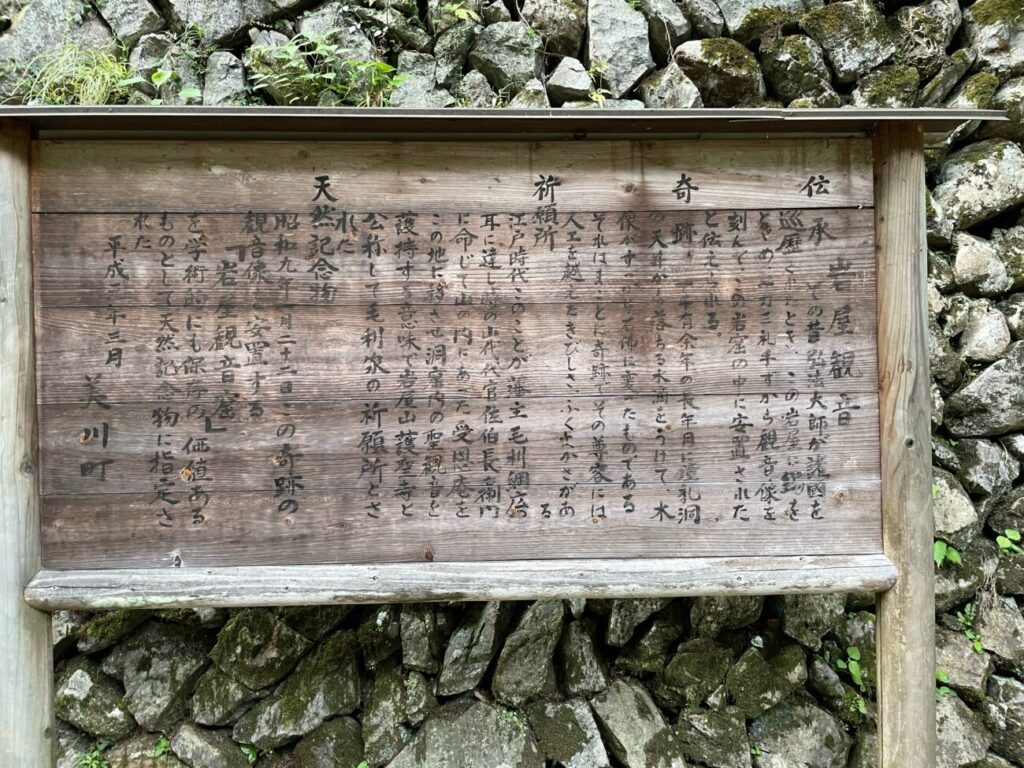 岩屋観音
伝承 その昔弘法大師が諸國を
巡歴されたとき、この岩屋に錫を
とどめ 一刀三礼手ずから観音像を
刻んで、この岩窟の中に安置された
と伝えられる。
奇跡 一千有余年の長年月に鐘乳洞
の天井から落ちる水滴をうけて 木
像がすべて石佛に変ったものである
それはまことに奇跡で その尊容には
人工を越えたきびしさ、ふくよかさがあ
る
祈願所
江戸時代このことが藩主毛利綱廣
耳に達し 時の山代代官佐伯長衛門
に命じて山の内にあった受恩庵を
この地に移させ洞窟内の聖観音を
護持する意味で岩屋山護聖寺と
公称して毛利家の祈願所とさ
れた
天然記念物
昭和九年 月二十二日この奇跡の
観音像を安置する
「岩屋観音窟」
を学術的にも保存の価値ある
ものとして天然記念物に指定さ
れた
平成 年三月 美川町